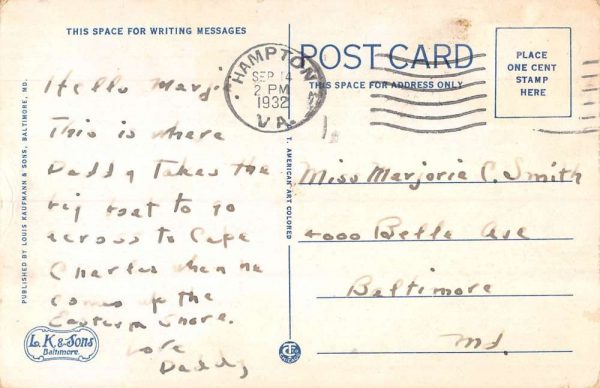 THIS SPACE FOR WRITING MESSAGES
Hello Marjie
This is where
Daddy takes the
big boat to go
across to Cape
Charles when he
comes up the
Eastern Shore.
Love
Daddy
PUBLISHED BY LOUIS KAUFMANN & SONS, BALTIMORE, MD.
L. K. & Sons
Baltimore
HAMPTON
SEP 14
2 PM
1932
VA.
POST CARD
THIS SPACE FOR ADDRESS ONLY
PLACE
ONE CENT
STAMP
HERE
T. AMERICAN ART COLORED
Miss Marjorie C. Smith
4000 Belle Ave
Baltimore
Md.